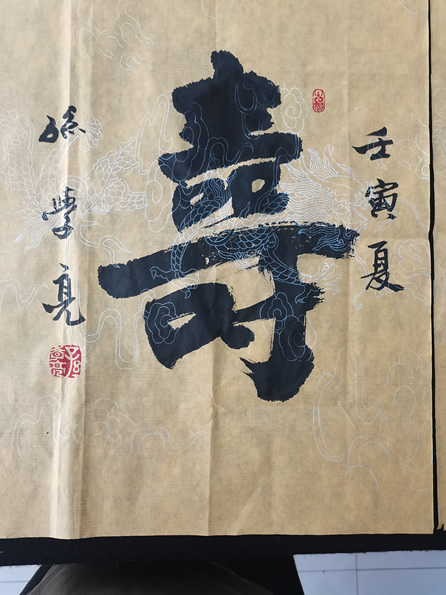 壬寅夏
壽
孫學亮